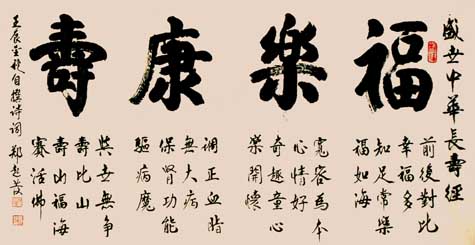 盛世中華長壽經
福樂康壽
前後對比
幸福多
知足常樂
福如海
寬容為本
心情好
奇趣童心
樂開懷
调正血脂
無大病
保肾功能
驅病魔
與世無争
壽比山
壽山福海
賽活佛
壬辰 自撰诗词